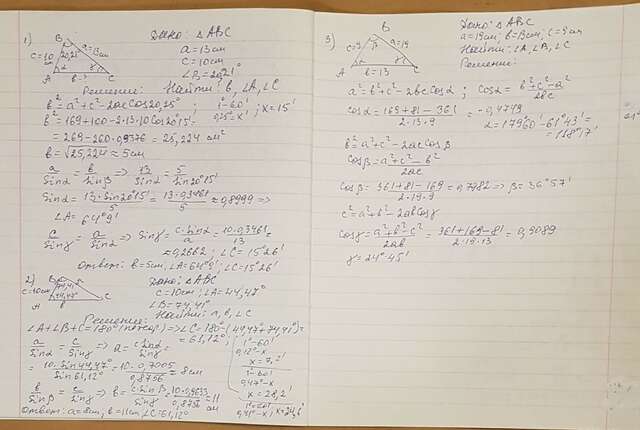 1)
Дано: △ABC
a = 13см
c = 10см
B
c=10см
20,21°
a=13см
A
b-?
C
Решение:
Найти: b, ∠A, ∠C
b² = a² + c² - 2ac Cos 20,25°
1° - 60'
0,25° = x'
; x = 15'
b² = 169 + 100 - 2·13·10 Cos 20°15' =
= 269 - 260·0,9376 = 25,224 см²
b = √25,224 ≈ 5см
a/Sinα = b/Sinβ ⇒ 13/Sinα = 5/Sin20°15'
Sinα = 13·Sin20°15'/5 = 13·0,3461/5 ≈ 0,8999 ⇒
∠A = 64°9'
c/Sinγ = a/Sinα ⇒ Sinγ = c·Sinα/a = 10·0,3461/13 =
≈ 0,2662; ∠C = 15°26'
Ответ: b=5см, ∠A=64°9'; ∠C=15°26'
2)
B
c=10см
74,41°
44,47°
A
b
C
Дано: △ABC
c = 10см; ∠A = 44,47°
∠B = 74,41°
Решение:
Найти: a, b, ∠C
∠A+∠B+∠C = 180° ⇒ ∠C = 180° - (44,47+74,41°) =
= 61,12°;
a/Sinα = c/Sinγ ⇒ a = c·Sinα/Sinγ =
= 10·Sin44,47°/Sin61,12° = 10·0,7005/0,8756 = 8см
b/Sinβ = c/Sinγ ⇒ b = c·Sinβ/Sinγ = 10·0,9633/0,8756 = 11 см
1° - 60'
0,12° - x
x = 7,2'
1° - 60'
0,47° - x
x = 28,2'
1° - 60'
0,41° - x; x = 24,6'
Ответ: a=8см, b=11см, ∠C=61,12°
3)
B
c=9
β
a=19
A
α
b=13
C
Дано: △ABC
a=19см; b=13см; c=9см
Найти: ∠A, ∠B, ∠C
Решение:
a² = b² + c² - 2bc Cosα; Cosα = b²+c²-a²/2bc
Cosα = 169+81-361/2·13·9 = -0,4749
α = 179°60' - 61°43' =
= 118°17'
b² = a² + c² - 2ac Cosβ
Cosβ = a²+c²-b²/2ac
Cosβ = 361+81-169/2·19·9 = 0,7982 ⇒ β = 36°57'
c² = a² + b² - 2ab Cosγ
Cosγ = a²+b²-c²/2ab = 361+169-81/2·19·13 = 0,9089
γ = 24°45'